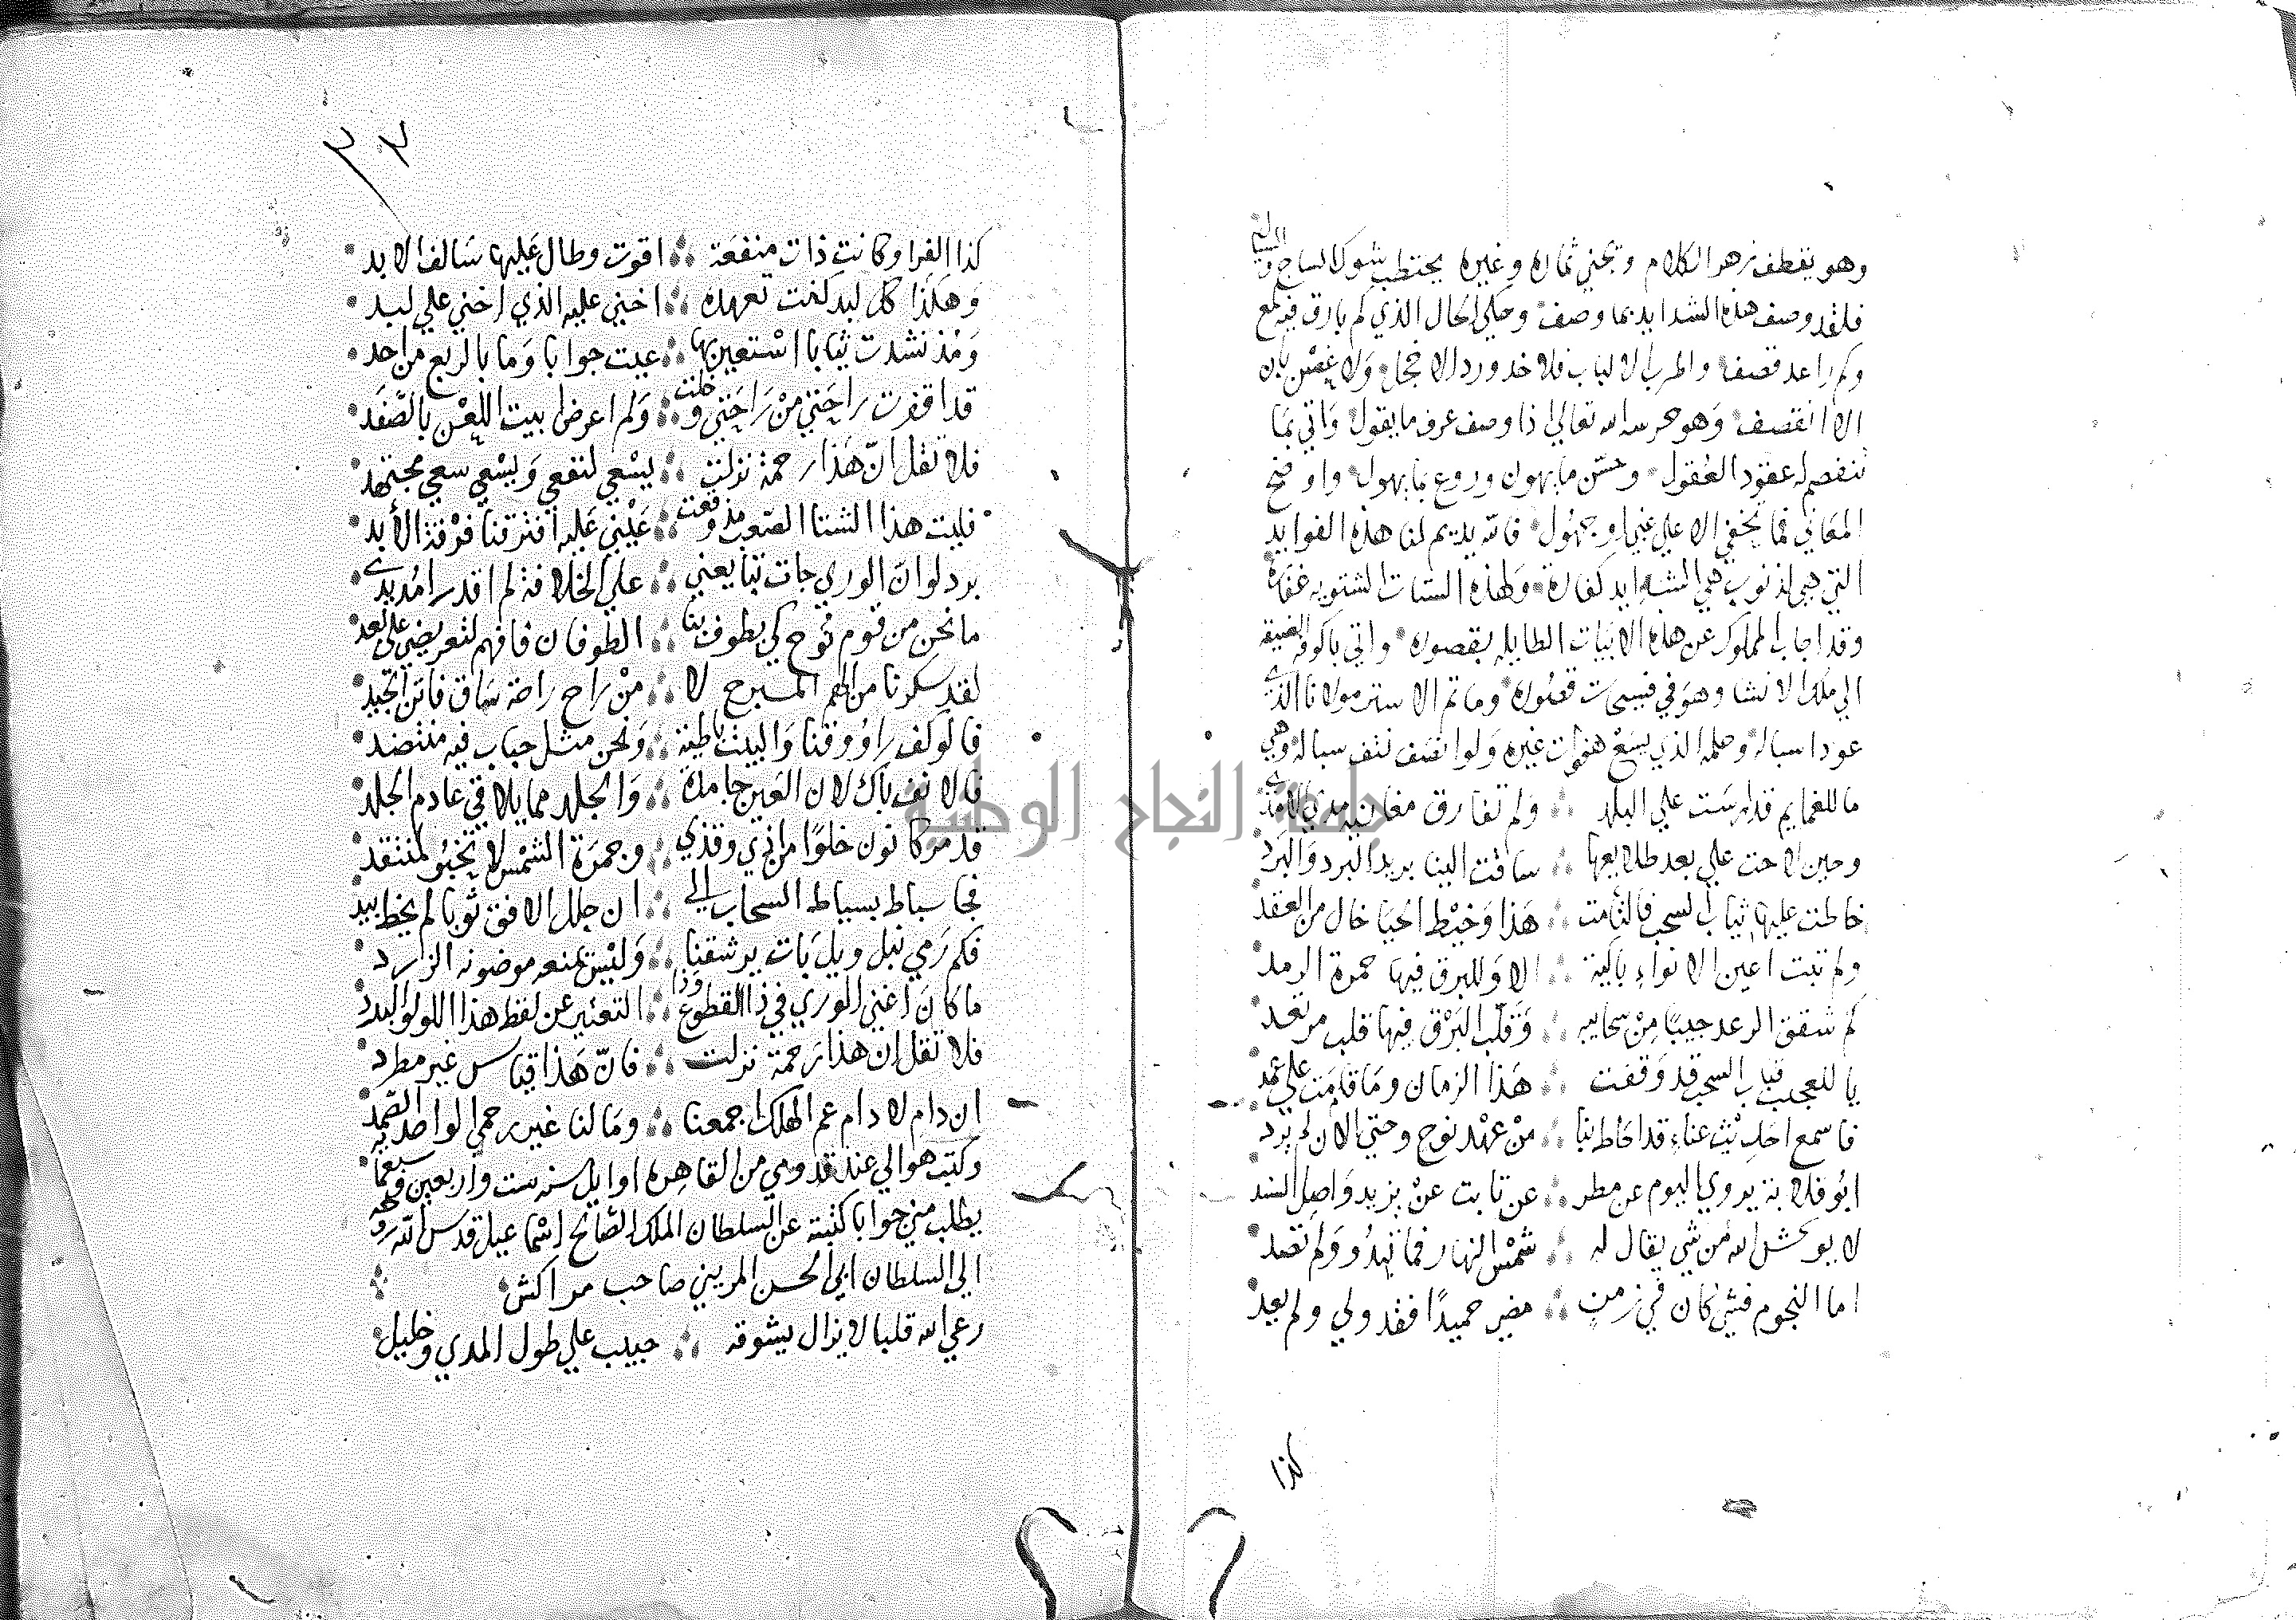 وهو يقطف زهر الكلام ويجني ثماره وغيره يحتطب شوك الساج و
فلقد وصف هذه الشدايد بما وصف وحكي الحال الذي كم بارق فيه لمع
وكم راعد قصف واطرب الالباب فلا خد ورد الا خجل ولا غصن بان
الا انقصف وهو حرسه الله تعالي اذا وصف عرف ما يقول واتي بما
تنفصم له عقود العقول وحسن ما يهون وروع بما يهول واوضح
المعاني فما تخفي الا علي غبي او جهول فالله يديم لنا هذه الفوايد
التي هي لذنوب هي الشدايد كفارة ولهذه السيات الشتويه غفارة
وقد اجاب المملوك عن هذه الابيات الطايله بقصوره واتي باكوفه الضيقه
الي ملك الانشا وهو في فسيحات قصوره وما تم الا ستر مولانا الذي
عود اسباله وحلمه الذي يسع هفوات غيره ولو انصف نتف سباله وهي
ما للغمايم قد ارست علي البلد ولم تفارق مغانيه مدي الامد
وحين لاحت علي بعد طلايعها ساقت الينا بريد البرد والبرد
خاطت عليها ثياب السحب فالتامت هذا وخيط الحيا خال من العقد
ولم تبت اعين الانواء باكية الا وللبرق فيها حمرة الرمد
كم شقق الرعد جيبا من سحايبه وقلب البرق فيها قلب مرتعد
يا للعجب قباب السحب قد وقفت هذا الزمان وما قامت علي عمد
فاسمع احاديث عناء قد احاط بنا من عهد نوح وحتي الان لم يرد
ابو قلابة يروي اليوم عن مطر عن ثابت عن يزيد واصل السند
لا يوحش الله من شي يقال له شمس النهار فما تبدو ولم تصد
اما النجوم فشي كان في زمن مضي حميدا فقد ولي ولم يعد
كذا
٣٠٢
كذا الفرا وكانت ذات منفعة اقوت وطال عليها سالف الابد
وهكذا كل لبد كنت تعهده اخني عليه الذي اخني علي لبد
ومذ نشدت ثيابا استعين بها عيت جوابا وما بالربع من احد
قد اقفرت راحتي من راحتي وخلت ولم اعرض ابيت اللعن بالصفد
فلا تقل ان هذا رحمة نزلت يسعي لنفعي ويسعي سعي مجتهد
فليت هذا الشتا الصعب مذ وقعت عيني عليه افترقنا فرقة الابد
برد لو ان الوري جات تبايعني علي الخلافة لم اقدر امد يدي
ما نحن من قوم نوح كي يطوف بنا الطوفان فافهم لتعريضي علي بعد
لقد سكرنا من الهم المبرح لا من راح راحة ساق فاتن الجيد
فالوكف راووقنا والبيت باطية ونحن مثل حباب فيه منتضد
فالانف باك لان العين جامدة والجلد مما يلاقي عادم الجلد
قد مر كانون خلوا من اذي وقذي وجمرة الشمس لا تخبو لمنتقد
فجا سباط بسياط السحاب الي ان جلل الافق ثوبا لم يخط بيد
فكم رمي نبل وبل بات يرشقنا وليس تمنعه موضونه الزرد
ما كان اغني الوري في ذا القطوع وذا التعثير عن لقط هذا اللولو البدد
فلا تقل ان هذا رحمة نزلت فان هذا قياس غير مطرد
ان دام لا دام عم الهلك اجمعنا وما لنا غير رحمي الواحد الصمد
وكتب هو الي عند قدومي من القاهره اوايل سنه ست واربعين وسبعمايه
يطلب مني جوابا كتبته عن السلطان الملك الصالح اسماعيل قدس الله روحه
الي السلطان ابي الحسن المريني صاحب مراكش
رعي الله قلبا لا يزال يشوقه حبيب علي طول المدي وخليل
جامعة النجاح الوطنية